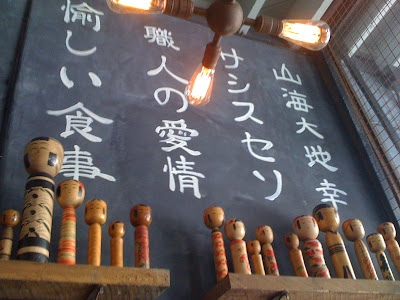 山海大地幸
サシスセソ
職人の愛情
愉しい食事